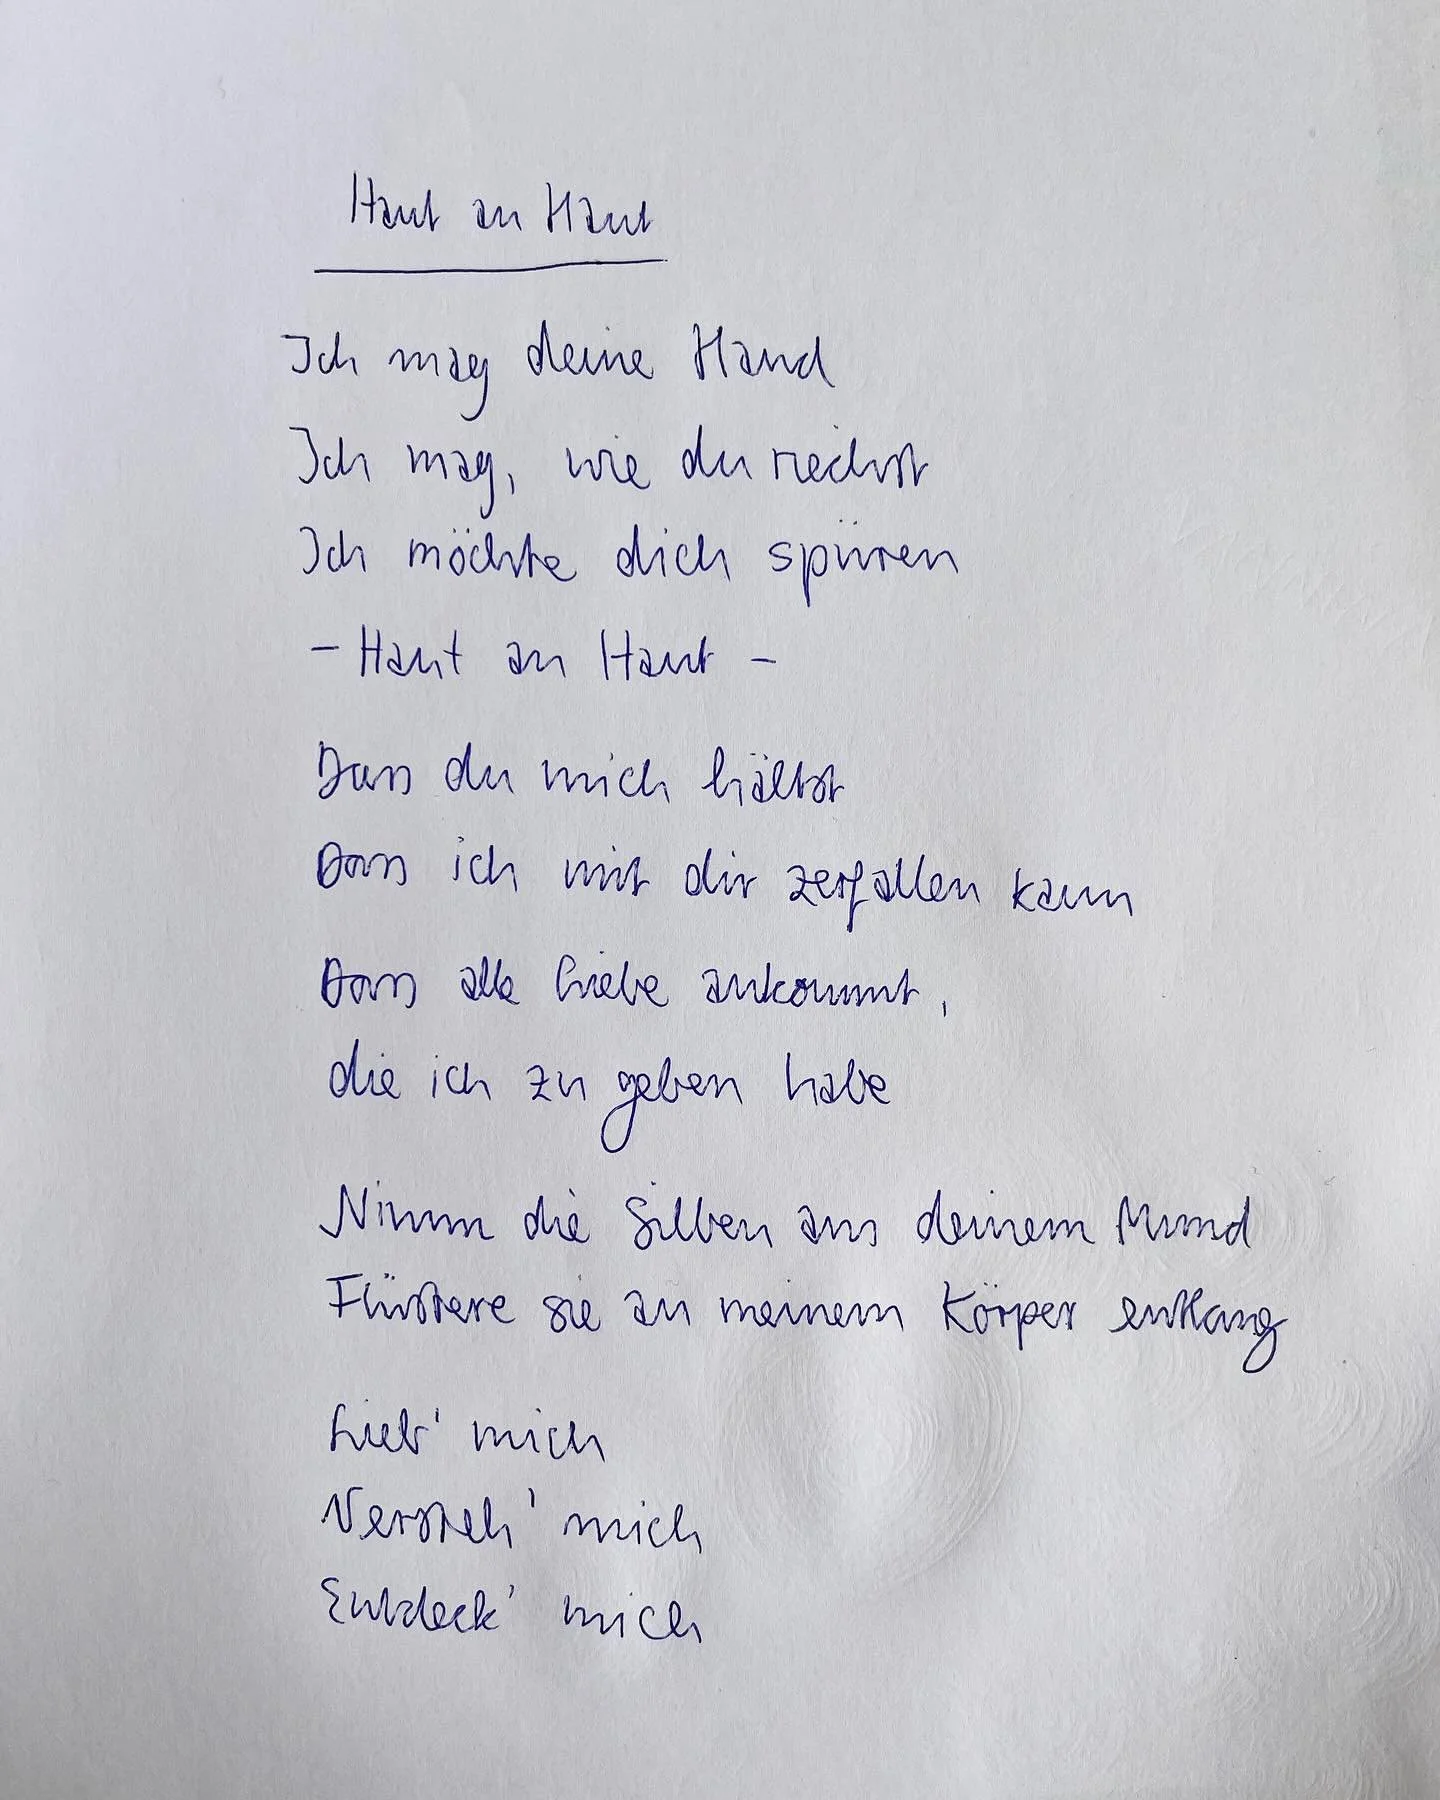 Haut an Haut
Ich mag deine Hand
Ich mag, wie du riechst
Ich möchte dich spüren
- Haut an Haut -
Dass du mich hältst
Dass ich mit dir zerfallen kann
Dass alle Liebe ankommt,
die ich zu geben habe
Nimm die Silben aus deinem Mund
Flüstere sie an meinem Körper entlang
Lieb' mich
Versteh' mich
Entdeck' mich